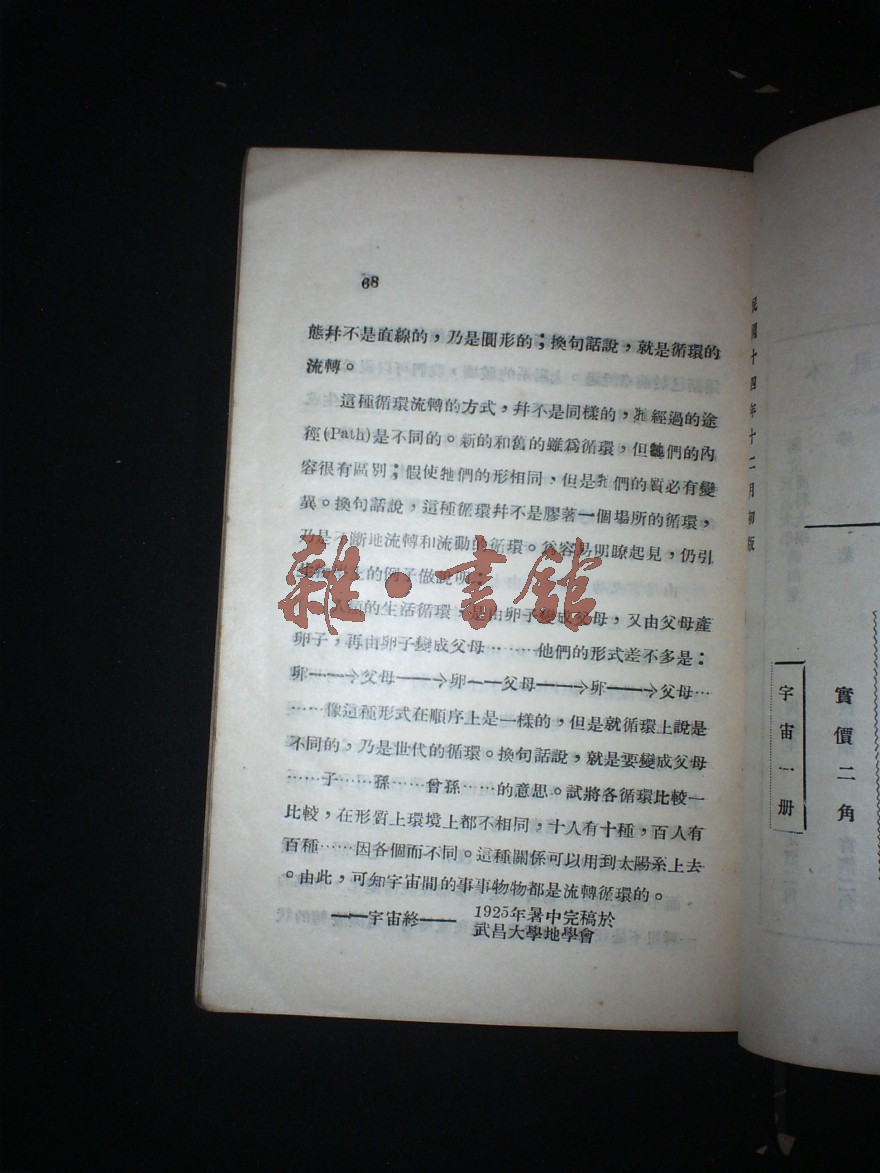 68
態幷不是直線的，乃是圓形的；換句話說，就是循環的
流轉。
這種循環流轉的方式，幷不是同樣的，牠經過的途
徑(Path)是不同的。新的和舊的雖爲循環，但牠們的內
容很有區別；假使牠們的形相同，但是牠們的質必有變
異。換句話說，這種循環幷不是膠著一個場所的循環，
乃是不斷地流轉和流動的循環。爲容易明瞭起見，仍引
生物的例子做說明：
人類的生活循環，是由卵子變成父母，又由父母產
卵子，再由卵子變成父母………他們的形式差不多是：
卵——→父母——→卵——父母——→卵——→父母…
……像這種形式在順序上是一樣的，但是就循環上說是
不同的，乃是世代的循環。換句話說，就是要變成父母
……子……孫……曾孫……的意思。試將各循環比較一
比較，在形質上環境上都不相同，十人有十種，百人有
百種……因各個而不同。這種關係可以用到太陽系上去
。由此，可知宇宙間的事事物物都是流轉循環的。
——宇宙終——
1925年暑中完稿於
武昌大學地學會
雜·書館
民國十四年十二月初版
宇宙一册
實價二角